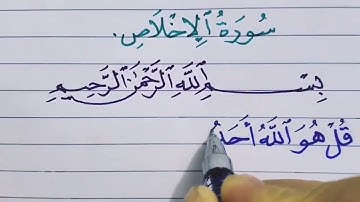 سُورَةُ ٱلْإِخْلَاصِ.
بِسْمِ ٱللَّهِ ٱلرَّحْمَٰنِ ٱلرَّحِيمِ
قُلْ هُوَ ٱللَّهُ أَحَدٌ